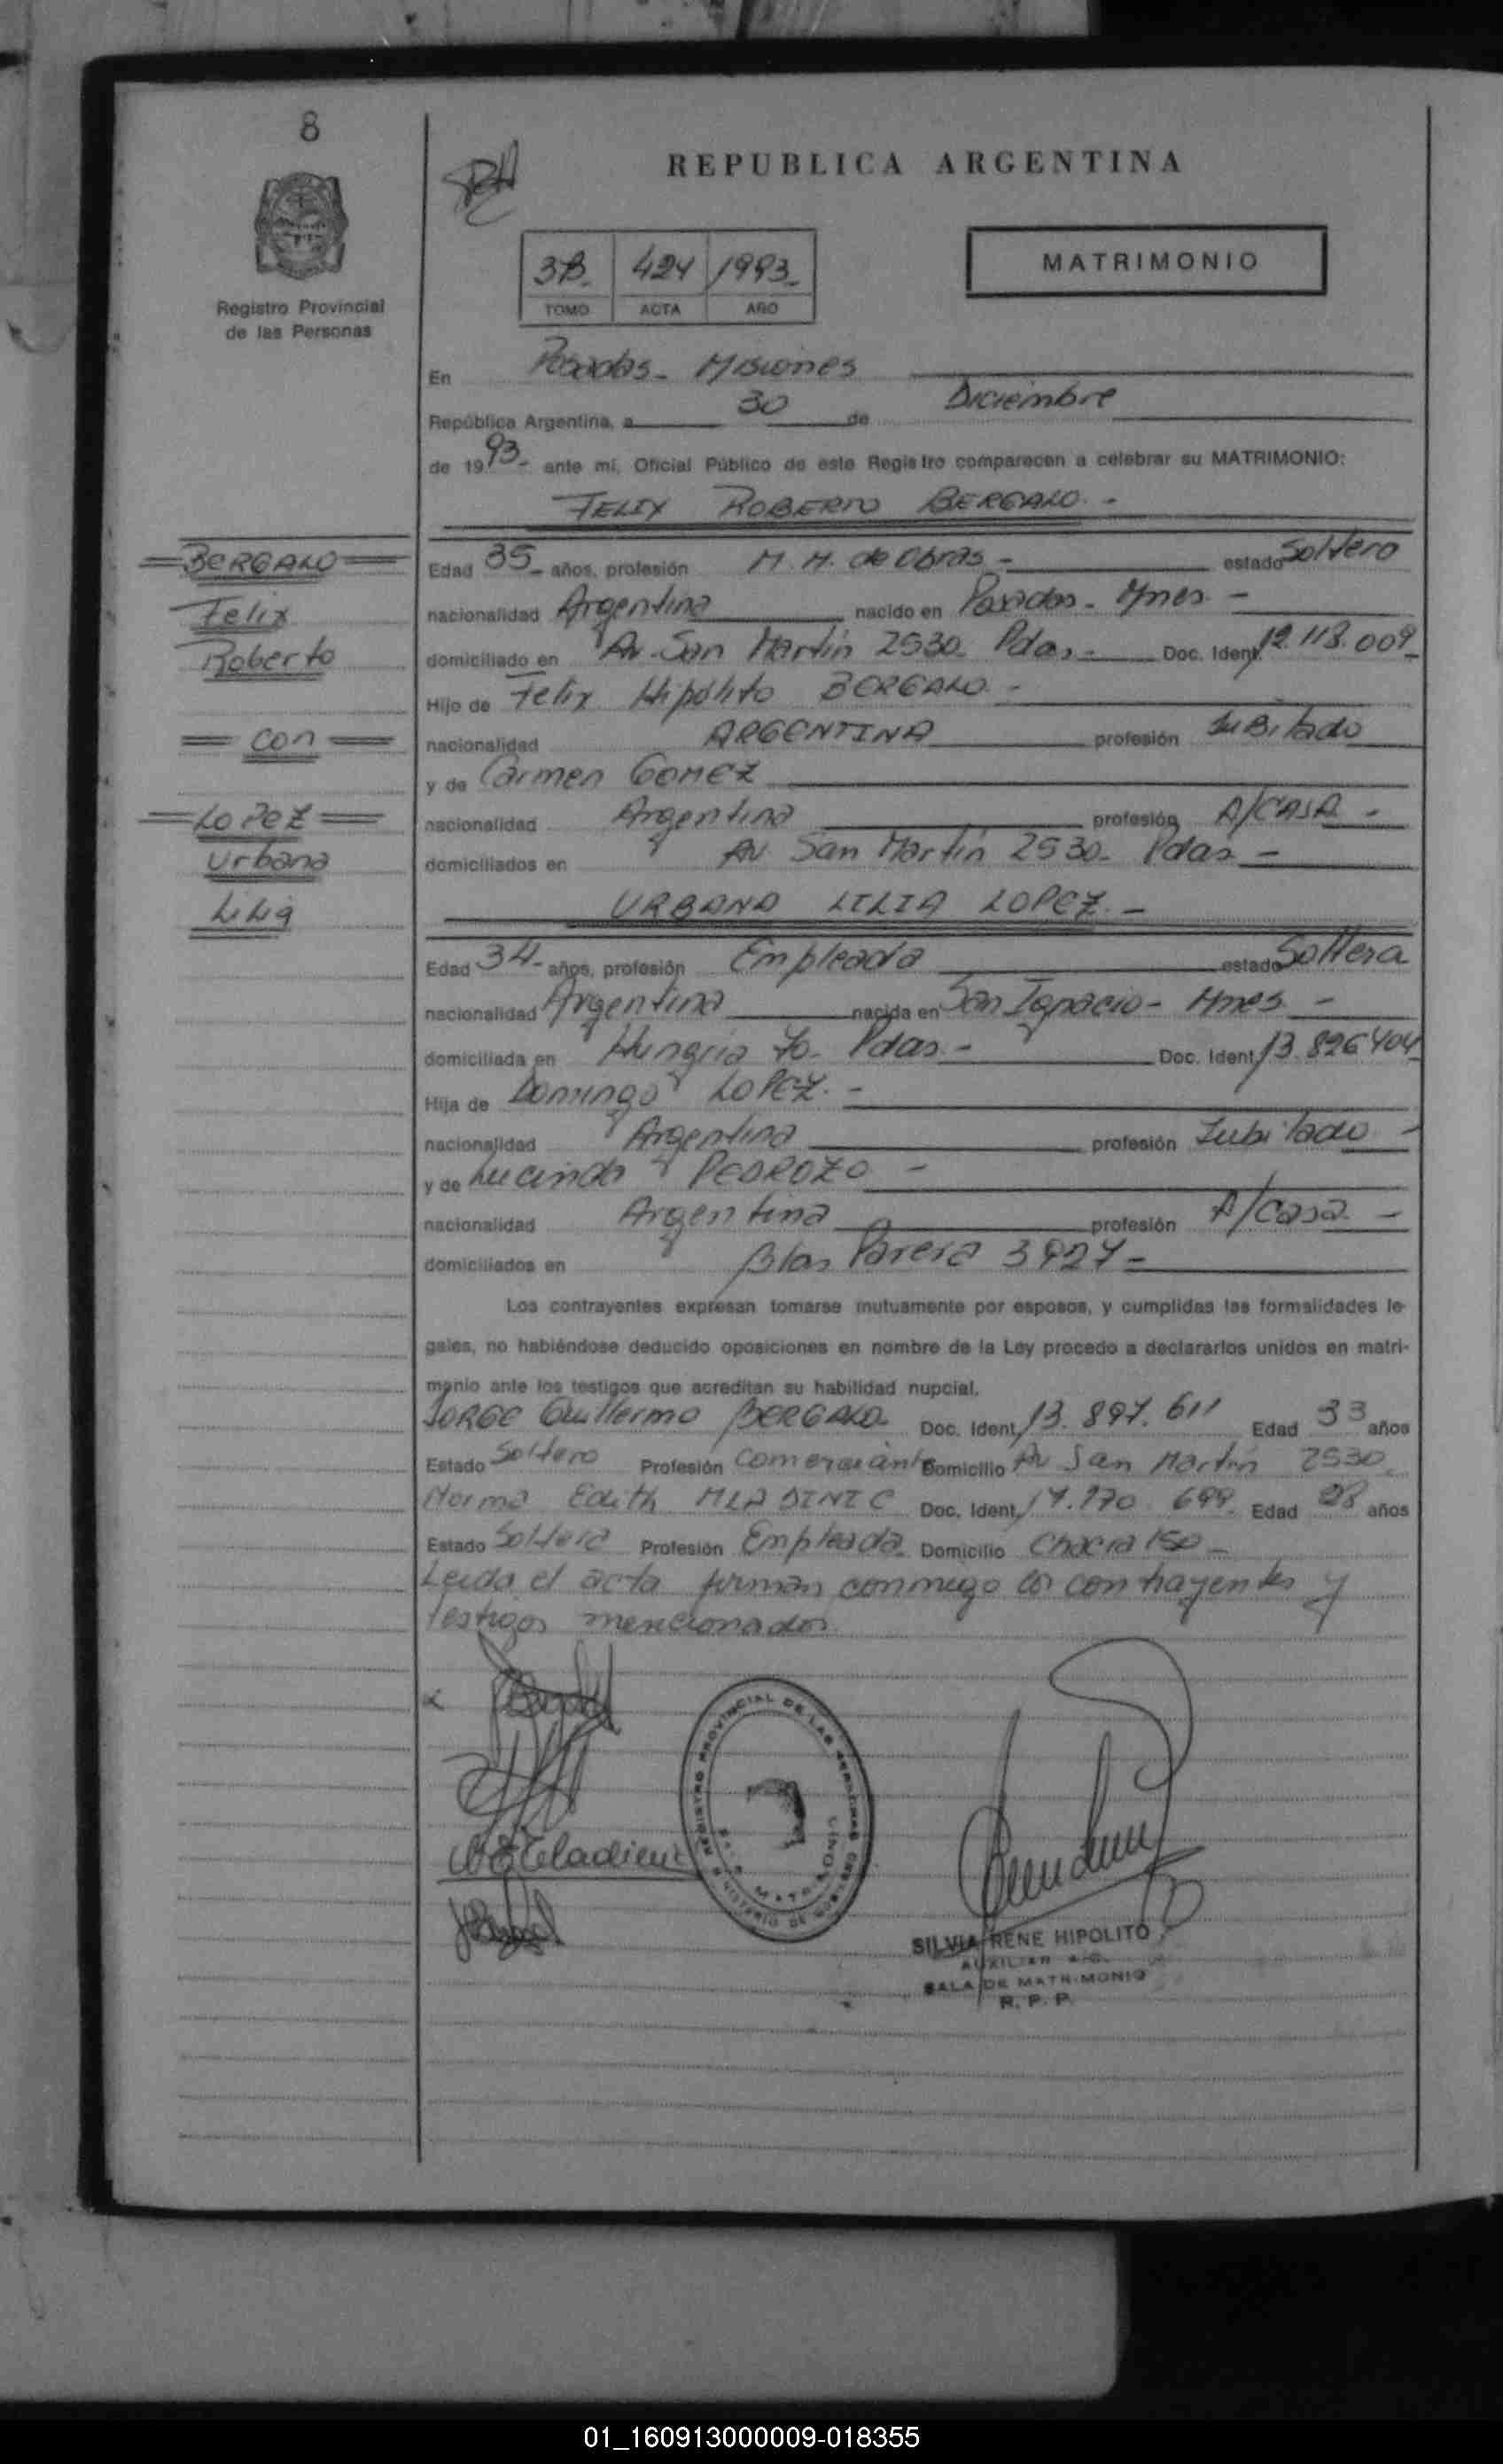 8
REPUBLICA ARGENTINA
3B. 424 1993
TOMO ACTA AÑO
MATRIMONIO
Registro Provincial
de las Personas
En Posadas - Misiones
República Argentina, a 30 de Diciembre
de 19 93- ante mí, Oficial Público de este Registro comparecen a celebrar su MATRIMONIO:
FELIX ROBERTO BERGALO.-
=BERGALO=
Felix
Roberto
= con =
=LOPEZ=
Urbana
Lilia
Edad 35- años, profesión M.M. de Obras - estado Soltero
nacionalidad Argentina nacido en Posadas - Mnes -
domiciliado en Av. San Martín 2530. Pdas.- Doc. Ident. 12.118.009-
Hijo de Felix Hipólito BERGALO.-
nacionalidad ARGENTINA profesión Jubilado
y de Carmen GOMEZ
nacionalidad Argentina profesión A/CASA -
domiciliados en Av. San Martín 2530- Pdas -
URBANA LILIA LOPEZ.-
Edad 34- años, profesión Empleada estado Soltera
nacionalidad Argentina nacida en San Ignacio - Mnes -
domiciliada en Hungria 70. Pdas.- Doc. Ident. 13.826404
Hija de Domingo LOPEZ.-
nacionalidad Argentina profesión Jubilado -
y de Lucinda PEDROZO -
nacionalidad Argentina profesión A/Casa -
domiciliados en Blas Parera 3927-
Los contrayentes expresan tomarse mutuamente por esposos, y cumplidas las formalidades le-
gales, no habiéndose deducido oposiciones en nombre de la Ley procedo a declararlos unidos en matri-
monio ante los testigos que acreditan su habilidad nupcial.
JORGE Guillermo BERGALO Doc. Ident. 13.897.611 Edad 33 años
Estado Soltero Profesión Comerciante Domicilio Av San Martín 2530
Norma Edith MLADINIC Doc. Ident. 17.170.699. Edad 28 años
Estado Soltera Profesión Empleada Domicilio Chacra 150 -
Leida el acta firman conmigo los contrayentes y
testigos mencionados
REGISTRO PROVINCIAL DE LAS PERSONAS
MINISTERIO DE
MATRIMONIO
SILVIA RENE HIPOLITO
AUXILIAR
SALA DE MATRIMONIO
R. P. P.
01_160913000009-018355